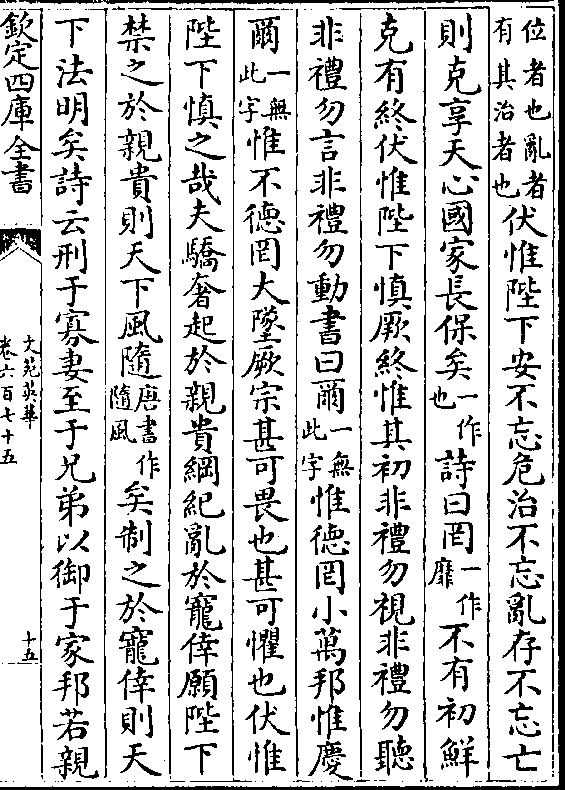 位者也亂者有其治者也伏惟陛下安不忘危治不忘亂存不忘亡
則克享天心國家長保矣一作也詩曰罔一作靡不有初鮮
克有終伏惟陛下慎厥終惟其初非禮勿視非禮勿聽
非禮勿言非禮勿動書曰爾一無此字惟德罔小萬邦惟慶
爾一無此字惟不德罔大墜厥宗甚可畏也甚可懼也伏惟
陛下慎之哉夫驕奢起於親貴綱紀亂於寵倖願陛下
禁之於親貴則天下風隨唐書作隨風矣制之於寵倖則天
下法明矣詩云刑于寡妻至于兄弟以御于家邦若親
欽定四庫全書
文苑英華
卷六百七十五
十五